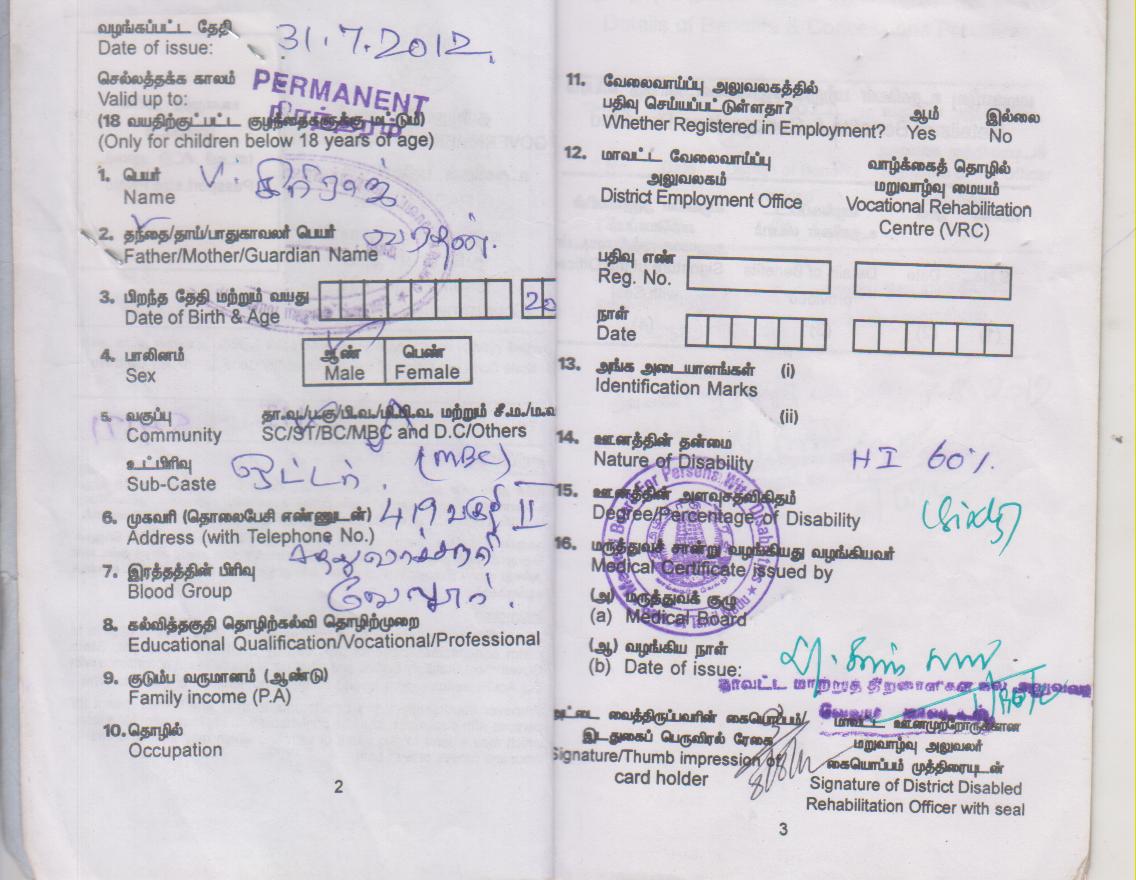 வழங்கப்பட்ட தேதி
Date of issue: 31.7.2012.
செல்லத்தக்க காலம்
Valid up to: PERMANENT
நிரந்தரம்
(18 வயதிற்குட்பட்ட குழந்தைகளுக்கு மட்டும்)
(Only for children below 18 years of age)
1. பெயர்
Name V.
2. தந்தை/தாய்/பாதுகாவலர் பெயர்
Father/Mother/Guardian Name
3. பிறந்த தேதி மற்றும் வயது
Date of Birth & Age 20
4. பாலினம் ஆண் பெண்
Sex Male Female
5. வகுப்பு தா.வ./ப.கு/பி.வ./மி.பி.வ. மற்றும் சீ.ம./ம.வ
Community SC/ST/BC/MBC and D.C/Others
உட்பிரிவு ஒட்டர். (MBC)
Sub-Caste
6. முகவரி (தொலைபேசி எண்ணுடன்) 419 பகுதி II
Address (with Telephone No.) சத்துவாச்சாரி
7. இரத்தத்தின் பிரிவு
Blood Group வேலூர்.
8. கல்வித்தகுதி தொழிற்கல்வி தொழிற்முறை
Educational Qualification/Vocational/Professional
9. குடும்ப வருமானம் (ஆண்டு)
Family income (P.A)
10. தொழில்
Occupation
2
11. வேலைவாய்ப்பு அலுவலகத்தில்
பதிவு செய்யப்பட்டுள்ளதா? ஆம் இல்லை
Whether Registered in Employment? Yes No
12. மாவட்ட வேலைவாய்ப்பு
அலுவலகம்
District Employment Office
வாழ்க்கைத் தொழில்
மறுவாழ்வு மையம்
Vocational Rehabilitation
Centre (VRC)
பதிவு எண்
Reg. No.
நாள்
Date
13. அங்க அடையாளங்கள் (i)
Identification Marks
(ii)
14. ஊனத்தின் தன்மை
Nature of Disability HI 60%.
15. ஊனத்தின் அளவுசதவிகிதம்
Degree/Percentage of Disability
16. மருத்துவச் சான்று வழங்கியது வழங்கியவர்
Medical Certificate issued by
(அ) மருத்துவக் குழு
(a) Medical Board
(ஆ) வழங்கிய நாள்
(b) Date of issue:
மாவட்ட மாற்றுத் திறனாளிகள் நல அலுவலர்
வேலூர்
அட்டை வைத்திருப்பவரின் கையொப்பம்/
இடதுகைப் பெருவிரல் ரேகை
Signature/Thumb impression of
card holder
மாவட்ட ஊனமுற்றோருக்கான
மறுவாழ்வு அலுவலர்
கையொப்பம் முத்திரையுடன்
Signature of District Disabled
Rehabilitation Officer with seal
3